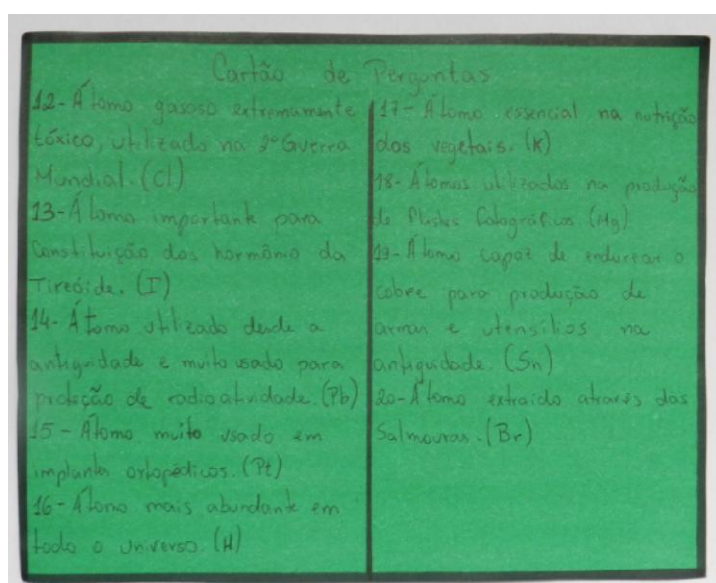 Cartão de Perguntas
12- Átomo gasoso extremamente
tóxico, utilizado na 2º Guerra
Mundial. (Cl)
13- Átomo importante para
Constituição dos hormônio da
Tireóide. (I)
14- Átomo utilizado desde a
antiguidade e muito usado para
proteção de radioatividade. (Pb)
15 - Átomo muito usado em
implantes ortopédicos. (Pt)
16- Átomo mais abundante em
todo o universo. (H)
17- Átomo essencial na nutrição
dos vegetais. (K)
18- Átomos utilizados na produção
de Flashs fotográficos. (Mg)
19- Átomo capaz de endurecer o
cobre para produção de
armas e utensílios na
antiguidade. (Sn)
20- Átomo extraído através das
Salmouras. (Br)